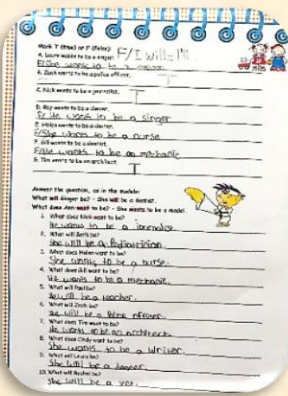 Mark T (true) or F (false):
A. Laura wants to be a singer. F/I will = I'll
F/She wants to be a
B. Zach wants to be a police officer.
T
C. Nick wants to be a journalist. T
D. Roy wants to be a dancer.
F/He wants to be a singer
E. Helen wants to be a dancer.
F/She wants to be a nurse
F. Bill wants to be a dentist.
F/He wants to be an mechanic
G. Tim wants to be an architect.
T
Answer the question, as in the module:
What will Ginger be? - She will be a dentist.
What does Ann want to be? - She wants to be a model.
1. What does Nick want to be?
He wants to be a journalist
2. What will Beth be?
She will be a Pediatrician
3. What does Helen want to be?
She wants to be a nurse.
4. What does Bill want to be?
He wants to be a mechanic.
5. What will Paul be?
He will be a teacher.
6. What will Zach be?
He will be a police officer.
7. What does Tim want to be?
He wants to be an architect.
8. What does Cindy want to be?
She wants to be a writer.
9. What will Laura be?
She will be a
10. What will Rachel be?
She will be a vet.